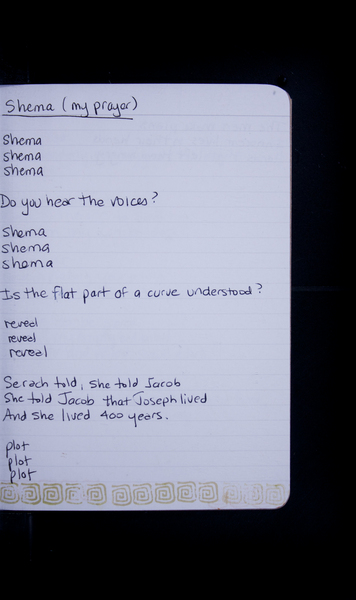 Shema (my prayer)
Shema
Shema
Shema
Do you hear the voices?
Shema
Shema
Shema
Is the flat part of a curve understood?
reveal
reveal
reveal
Serach told, she told Jacob
She told Jacob that Joseph lived
And she lived 400 years.
plot
plot
plot